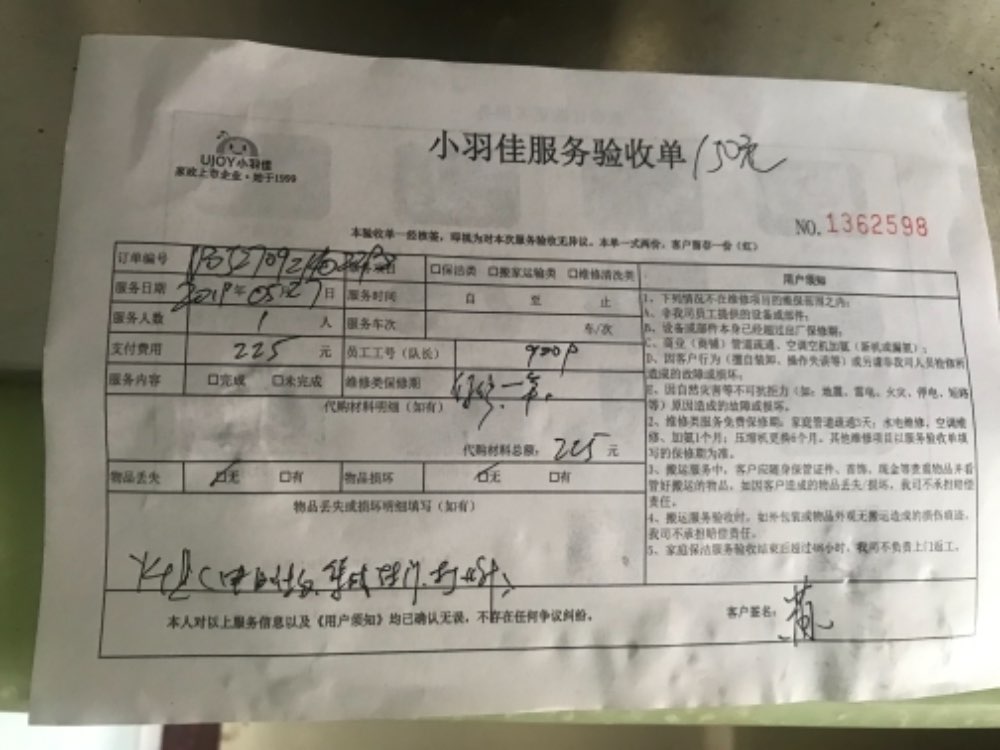 小羽佳服务验收单 150元
UJOY小羽佳
家政上市企业·始于1999
NO. 1362598
本验收单一经核签,即视为对本次服务验收无异议。本单一式两份,客户留存一份(红)
订单编号
□保洁类 □搬家运输类 □维修清洗类
服务日期 2019年05.27日 服务时间 自 至 止
服务人数 1 人 服务车次 车/次
支付费用 225 元 员工工号(队长)
服务内容 □完成 □未完成 维修类保修期 保修一年
代购材料明细(如有)
代购材料总额: 225 元
物品丢失 □无 □有 物品损坏 □无 □有
物品丢失或损坏明细填写(如有)
本人对以上服务信息以及《用户须知》均已确认无误,不存在任何争议纠纷。
客户签名:
用户须知
1、下列情况不在维修项目的维保范围之内:
A、非我司员工提供的设备或部件;
B、设备或部件本身已经超过出厂保修期;
C、商业(商铺)管道疏通、空调空机加氨(新机或漏氨);
D、因客户行为(擅自装卸、操作失误等)或另请非我司人员检修所
造成的故障或损坏;
E、因自然灾害等不可抗拒力(如:地震、雷电、火灾、停电、短路
等)原因造成的故障或损坏。
2、维修类服务免费保修期:家庭管道疏通3天;水电维修、空调维
修、加氨1个月;压缩机更换6个月。其他维修项目以服务验收单填
写的保修期为准。
3、搬运服务中,客户应随身保管证件、首饰、现金等贵重物品并看
管好搬运的物品,如因客户造成的物品丢失/损坏,我司不承担赔偿
责任。
4、搬运服务验收时,如外包装或物品外观无搬运造成的损伤痕迹,
我司不承担赔偿责任。
5、家庭保洁服务验收结束后超过48小时,我司不负责上门返工。